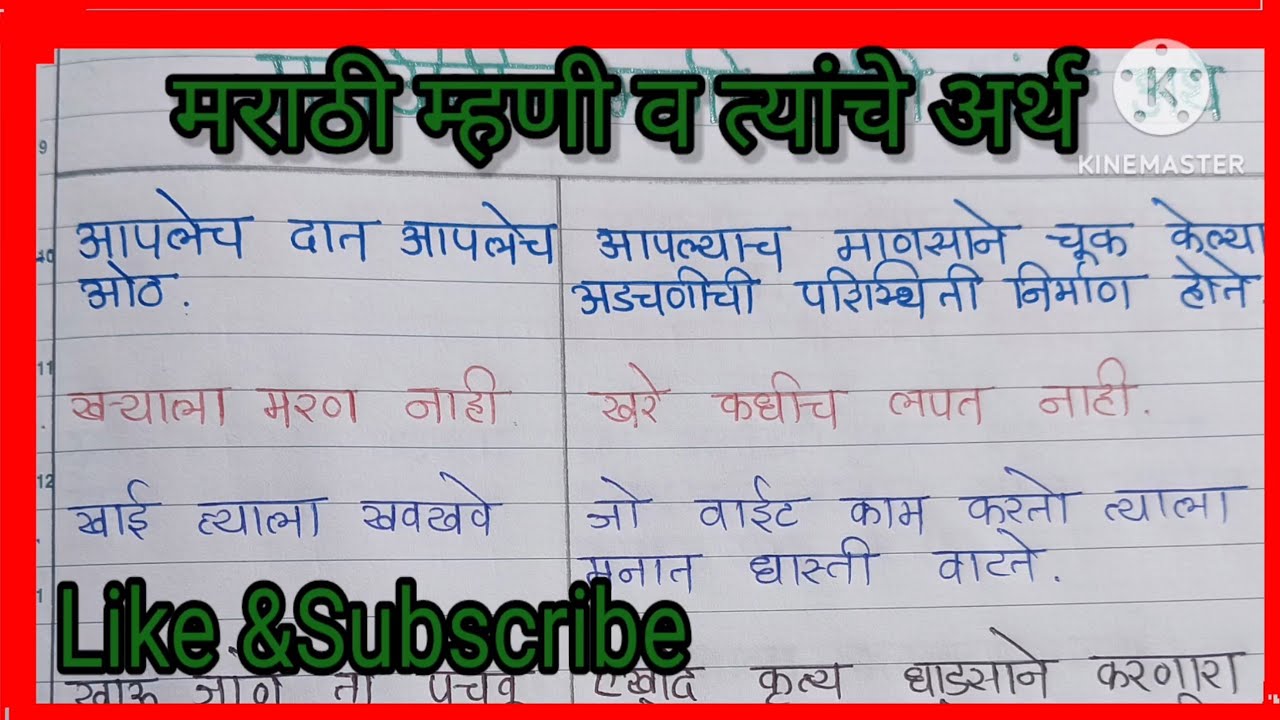 मराठी म्हणी व त्यांचे अर्थ
KINEMASTER
9
आपलेच दात आपलेच
ओठ.
आपल्याच माणसाने चूक केल्या
अडचणीची परिस्थिती निर्माण होते.
11
खऱ्याला मरण नाही
खरे कधीच लपत नाही.
12
खाई त्याला खवखवे
जो वाईट काम करतो त्याला
मनात धास्ती वाटते.
Like &Subscribe
खाऊ जाणे तो पचवू
एखादे कृत्य धाडसाने करणारा